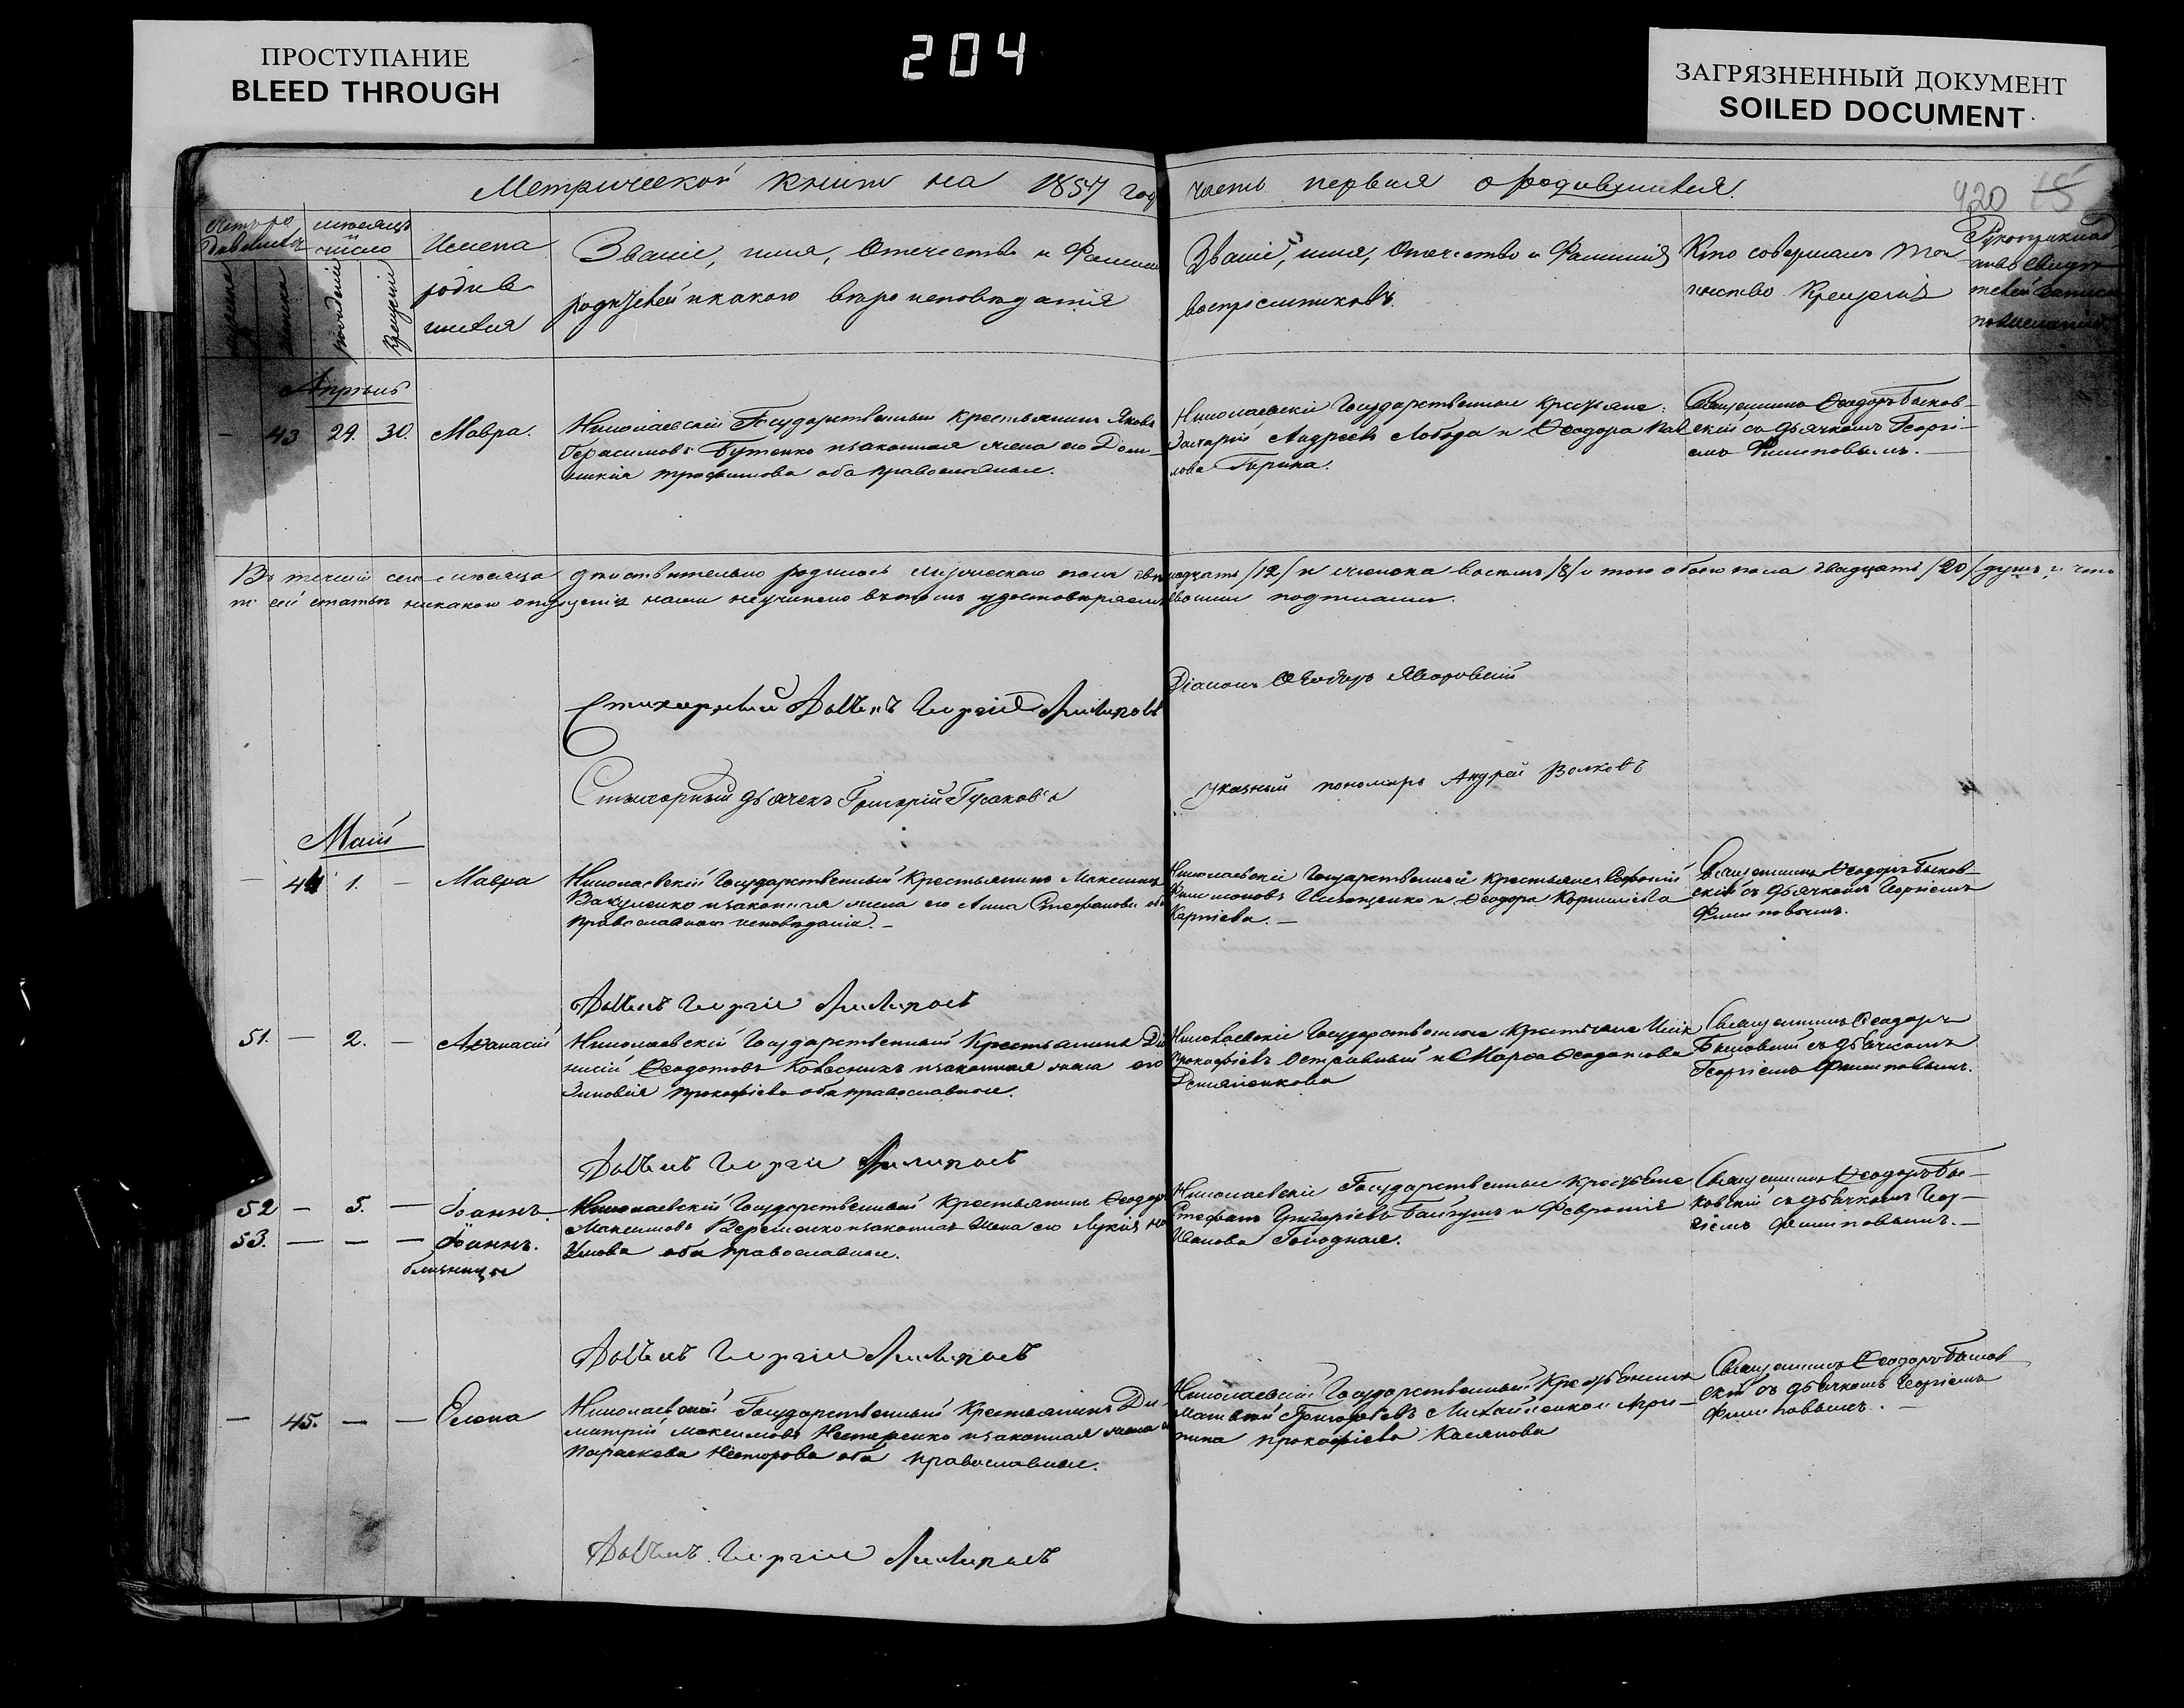 ПРОСТУПАНИЕ
BLEED THROUGH
204
ЗАГРЯЗНЕННЫЙ ДОКУМЕНТ
SOILED DOCUMENT
Метрической книги на 1857 год часть первая о родившихся.
420 15
мѣсяцъ и число
Имена родив шихся
Званіе, имя, Отечество и Фамилія
родителей и какого вѣро исповѣданія
Званіе, имя, Отечество и Фамилія
воспрiемниковъ.
Кто совершалъ Таи
инство Крещенія
Апрѣль
— 43 29. 30. Мавра.
Николаевскій Государственный Крестьянинъ Яковъ
Герасимовъ Бутенко и законная жена его Дом-
никія Трофимова оба православные.
Николаевскіе Государственные Крестьяне:
Захарій Андреевъ Лобода и Ѳеодора Пав
лова Гирина.
Священникъ Ѳеодоръ Быков-
скій съ дьячкомъ Георгі-
емъ Филиповымъ.
Въ теченіи сего мѣсяца дѣйствительно родилось мужескаго пола двѣнадцать /12/ и женска восемь /8/ и того обоего пола двадцать /20/ душъ; и что
сей статьѣ никакого опущенія нами неучинено въ томъ удостовѣряемъ своими подписами.
Діаконъ Ѳеодоръ Яворовскій
Стихарный Дьячекъ Георгій Филиповъ
Стихарный дьячекъ Григорій Гусаковъ
указный пономарь Андрей Волковъ
Май
— 44 1. — Мавра
Николаевскій Государственный Крестьянинъ Максимъ
Вакуленко и законная жена его Анна Стефанова оба
православнаго исповѣданія.—
Николаевскіе Государственные Крестьяне
Филимоновъ и Ѳеодора Корнилiева
Карпiева.—
Священникъ Ѳеодоръ Быков-
скій съ дьячкомъ Георгіемъ
Филиповымъ.
Дьячекъ Георгій Филиповъ
51. — 2. — Аѳанасій
Николаевскій Государственный Крестьянинъ Діо
нисій Ѳеодотовъ Колесникъ и законная жена его
Зиновія Прокофіева оба православные.
Николаевскіе Государственные Крестьяне
Прокофіевъ Остравный и Марѳа Ѳеодотова
Демяненкова
Священникъ Ѳеодоръ
Быковскій съ дьячкомъ
Георгіемъ Филиповымъ.
Дьячекъ Георгій Филиповъ
52 — 5. — Іоаннъ.
53. — — — Іоаннъ.
близнецы
Николаевскій Государственный Крестьянинъ Ѳеодоръ
Максимовъ Веременко и законная жена его Лукія На
умова оба православные.
Николаевскіе Государственные Крестьяне
Стефанъ Григорiевъ Байгушъ и Февронія
Иванова Голодная.
Священникъ Ѳеодоръ Бы-
ковскій съ дьячкомъ Геор-
гіемъ Филиповымъ.—
Дьячекъ Георгій Филиповъ
— 45. — — Елена
Николаевскій Государственный Крестьянинъ Ди-
митрій Максимовъ Нестеренко и законная жена
Параскева Несторова оба православные.
Николаевскій Государственный Крестьянинъ
Матвѣй Григорьевъ Михайленко и Агри-
пина Прокофіева Касянова
Священникъ Ѳеодоръ Быков
скій съ дьячкомъ Георгіемъ
Филиповымъ.—
Дьячекъ Георгій Филиповъ